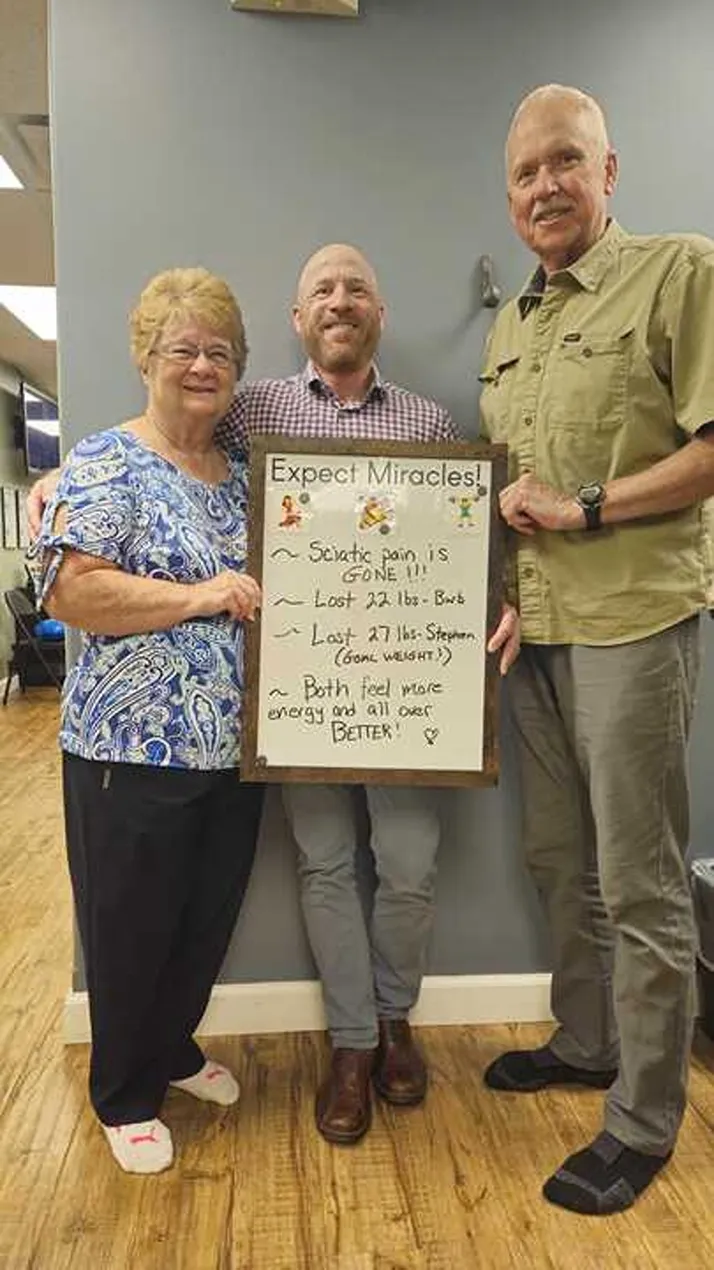 Expect Miracles!
~ Sciatic pain is
GONE !!!
~ Lost 22 lbs - Barb
~ Lost 27 lbs - Stephen
(GOAL WEIGHT!)
~ Both feel more
energy and all over
BETTER!